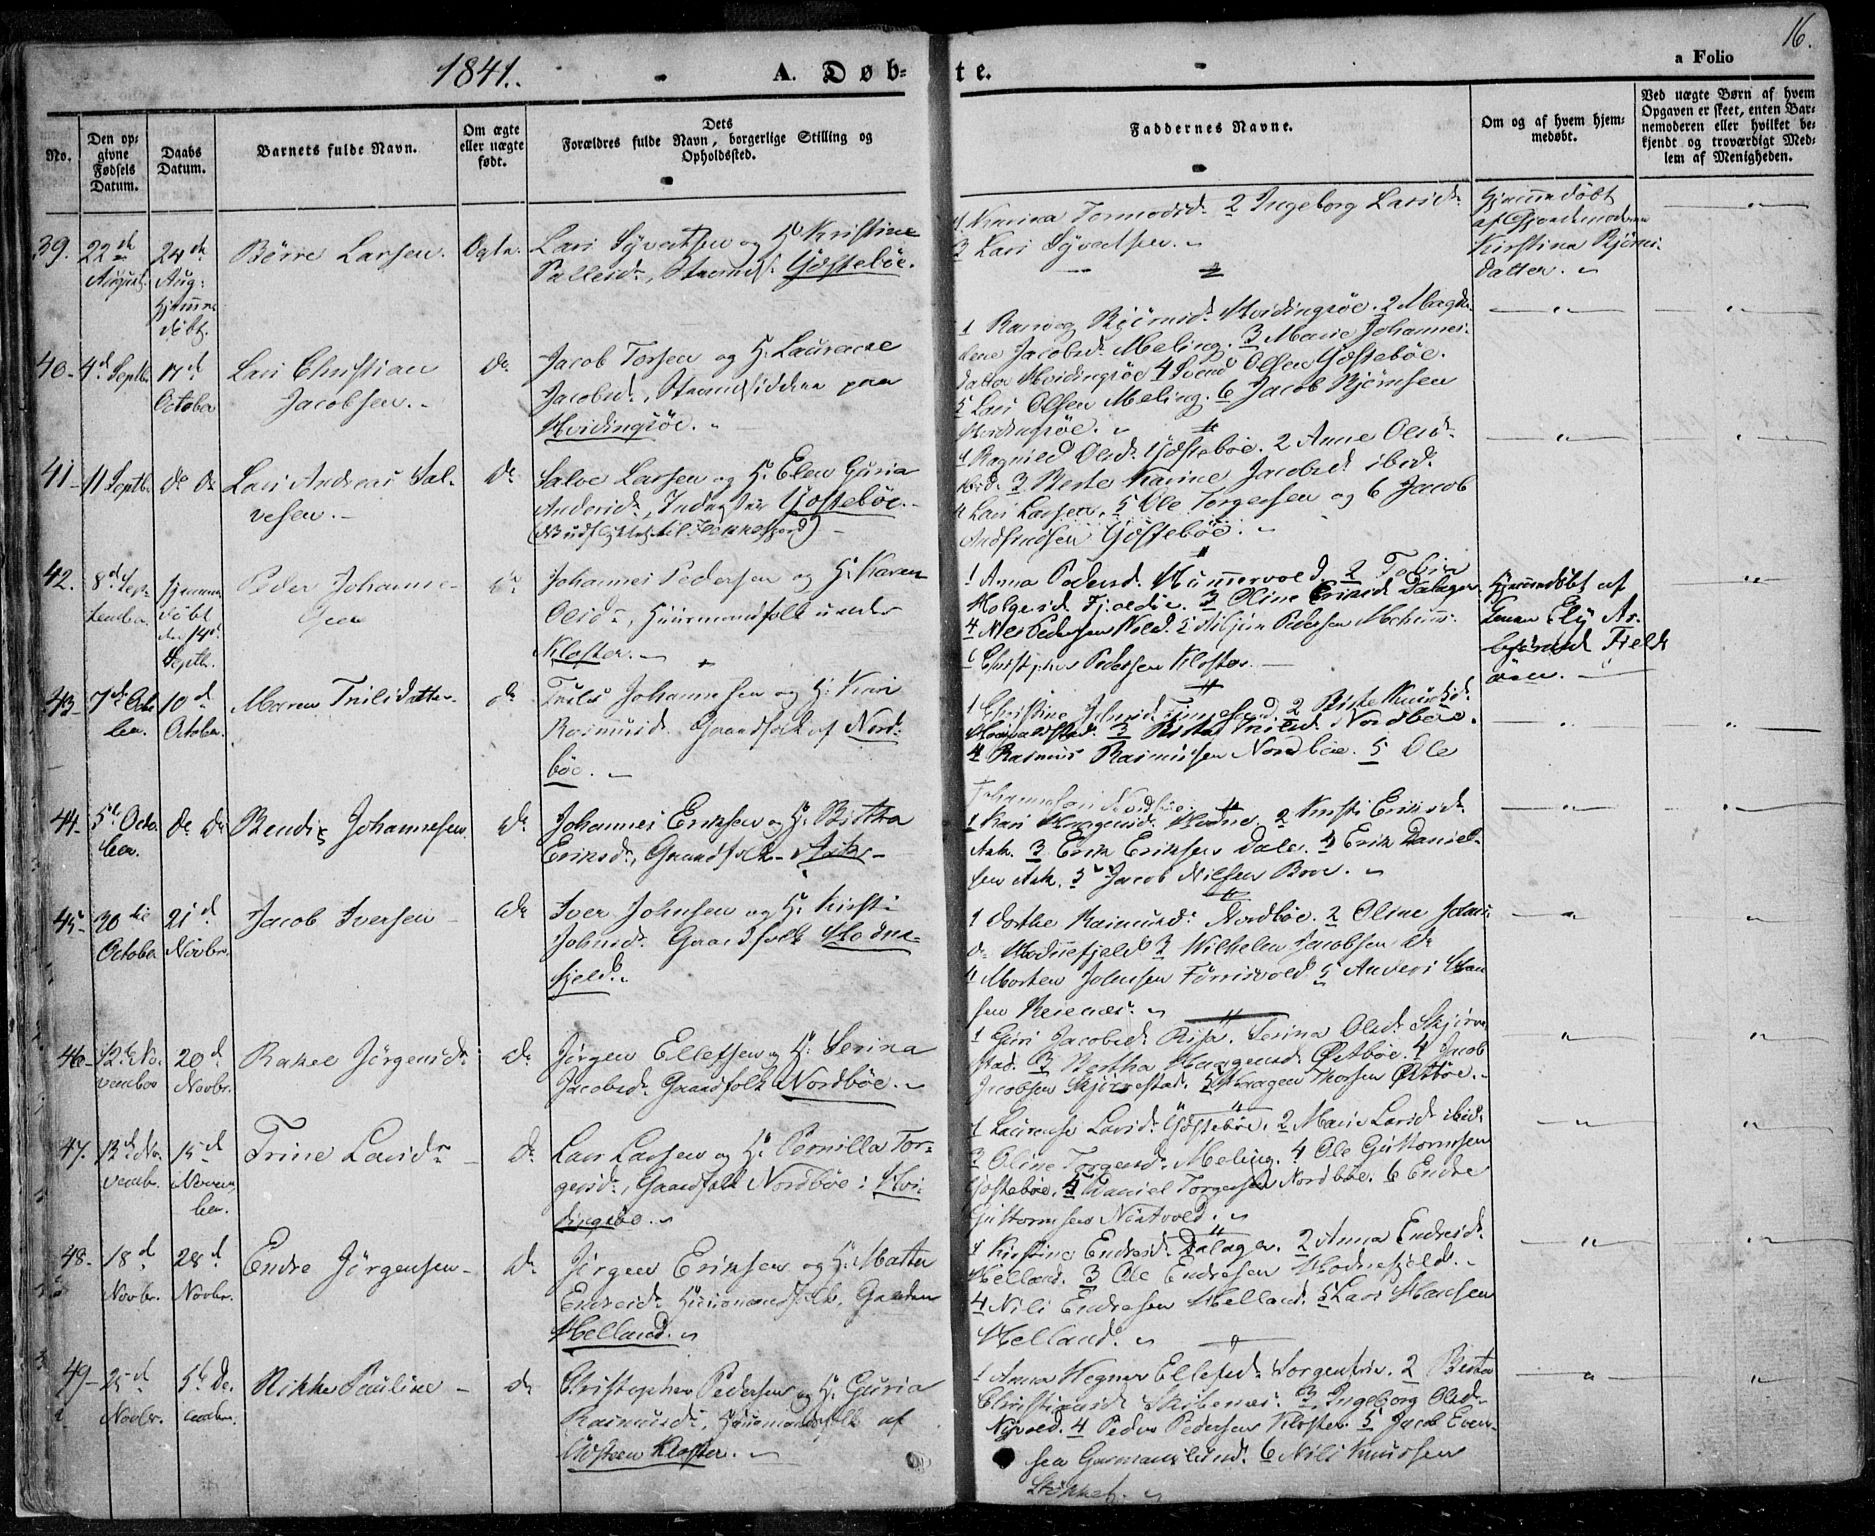 1841.
A. Døb-
te.
16.
a Folio
No.
Den op-
givne
Fødsels
Datum.
Daabs
Datum.
Barnets fulde Navn.
Om ægte
eller uægte
født.
Dets
Forældres fulde Navn, borgerlige Stilling og
Opholdssted.
Faddernes Navne.
Om og af hvem hjem-
medøbt.
Ved uægte Børn af hvem
Opgaven er skeet, enten Bar-
nemoderen eller hvilket be-
kjendt og troværdigt Med-
lem af Menigheden.
39.
22de
August.
24de
Aug:
hjemme
døbt.
Børre Larsen.
Ægte.
Lars Syvertsen og H. Kristine
Pallesd., Strands. Gjøstebøe.
1 Karina Tormodsd. 2 Ingeborg Larsd.
3 Lars Syvertsen.
Hjemmedøbt
af Gjordemoderen
Kirstina Bjørns-
datter.
40
4d Septbr.
17d
October
Lars Christian
Jacobsen.
do
Jacob Torsen og H. Laurense
Jacobsd., Strandsiddere paa
Hvidingsøe.
1 Ranveg Bjørnsd. Hvidingsøe. 2 Magda-
lene Jacobsd. Meling. 3 Marie Johannes-
datter Hvidingsøe 4 Svend Olsen Gjøstebøe.
5 Lars Olsen Meling. 6 Jacob Bjørnsen
Hvidingsøe.
41
11 Septb.
do do
Lars Andreas Sal-
vesen.
do
Salve Larsen og H. Elen Guria
Andersd., Inderster Gjøstebøe.
1 Ragnild Olsd. Gjøstebøe. 2 Anne Olsd.
ibid. 3 Berte Karine Jacobsd. ibid.
4 Lars Larsen. 5 Ole Torgersen og 6 Jacob
Gjøstebøe.
42.
8d Sep-
tember
hjemme
døbt
den 14d
Septb.
Peder Johanne-
sen
do
Johannes Pedersen og H. Karen
Olsd., Huusmandsfolk under
Kloster.
1 Anna Pedersd. Hummervold. 2
Fjeldøe. 3 Oline Eriksd. Dalager
4 Nils Pedersen Vold. 5 Pedersen
6 Christopher Pedersen Kloster.
Hjemmedøbt af
Fjeld-
øen.
43
7de Octo-
ber.
10d
October.
Maren Trulsdatter
do
Truls Johannesen og H. Kari
Rasmusd. Gaardfolk af Nord-
bøe.
1 Christine 2 Berte Knudsd.
3 Trulsd. Nordbøe.
4 Rasmus Rasmussen Nordbøe. 5 Ole
Johannesen Nordbøe.
44
5te Octo-
ber.
do do
Bendix Johannesen
do
Johannes Eriksen og H. Birtha
Eriksd., Gaardfolk Ask.
1 Kari Haagensd. Hodne. 2 Kirsti Eriksd.
Ask. 3 Erik Eriksen Dale. 4 Erik Daniel-
sen Ask. 5 Jacob Nilsen Broe.
45
30die
October
21d
Novbr.
Jacob Iversen
do
Iver Johnsen og H. Kirsti
Johnsd. Gaardfolk Hodne-
fjeld.
1 Dorthe Rasmusd. Nordbøe. 2 Oline Johns-
d. Hodnefjeld 3 Wilhelm Jacobsen do
4 Morten Johnsen 5 Anders Han-
sen Reienes.
46
12te No-
vember
20d
Novbr.
Rakel Jørgensd.
do
Jørgen Ellefsen og H. Serina
Jacobsd. Gaardfolk Nordbøe.
1 Guri Jacobsd. Risa. Serina Olsd. Skjørve-
stad. 3 Bertha Haagensd. Østbøe. 4 Jacob
Jacobsen Skjørvestad. 5 Haagen Thorsen Østbøe.
47.
13de No-
vembr.
15d
Novem-
ber.
Trine Larsdr
do
Lars Larsen og H. Pernilla Tor-
gersd., Gaardfolk Nordbøe: Hvi-
dingsøe.
1 Laurense Larsd. Gjøstebøe. 2 Marie Larsd. ibid.
3 Oline Torgersd. Meling. 4 Ole Guttormsen
Gjøstebøe. 5 Daniel Torgersen Nordbøe. 6 Endre
Guttormsen
48.
18d
Novbr.
28d
Novbr.
Endre Jørgensen
do
Jørgen Eriksen og H. Marta
Endresd. Huusmandsfolk, Gaarden
Helland.
1 Kirstine Endresd. Dalager. 2 Anna Endresd.
Helland. 3 Ole Endresen Hodnefjeld.
4 Nils Endresen Helland. 5 Lars Hansen
Helland.
49
25d
Novbr.
5te De-
cembr.
Rikke Pauline
do
Christopher Pedersen og H. Guria
Rasmusd., Huusmandsfolk af
Udsteen Kloster.
1 Anna Wegner Ellefsd. Sorgenfrie. 2 Berta
Christiansd. Skibenes. 3 Ingeborg Olsd.
4 Peder Pedersen Kloster 5 Jacob Even-
sen 6 Nils Knudsen